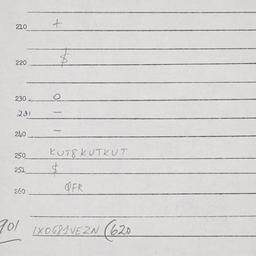 210 +
220 $
230 0
231 —
240 —
250 KUT8KUTKUT
252 $
260 0FR
901 1X0681VEZN (620